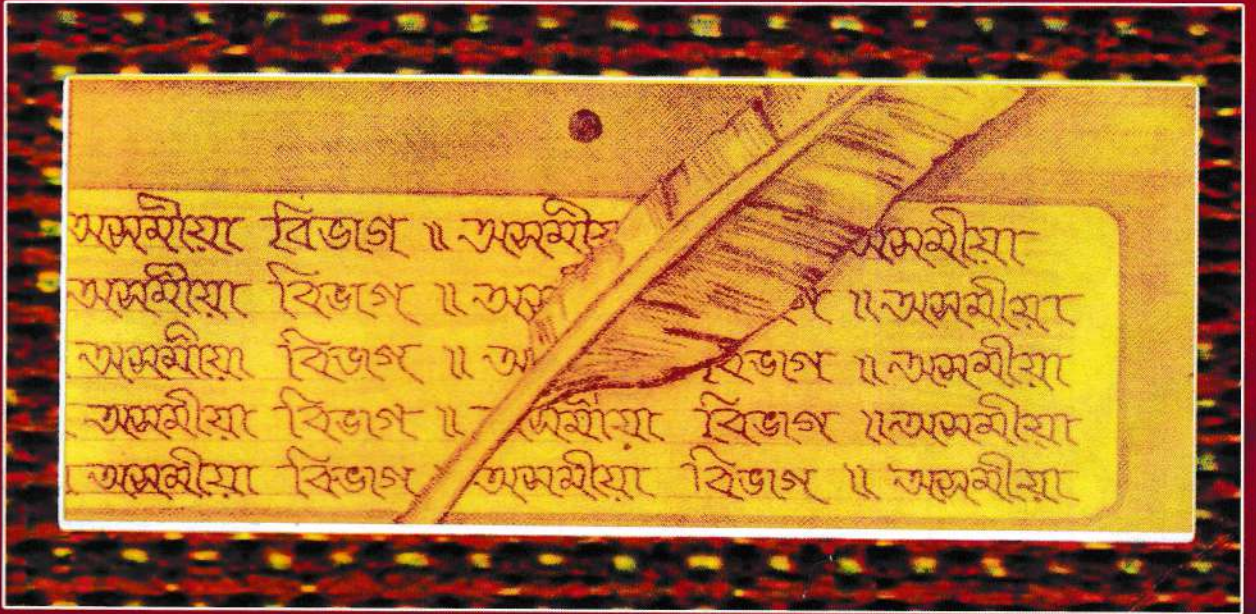 অসমীয়া বিভাগ ॥ অসমীয়া অসমীয়া
অসমীয়া বিভাগ ॥ ॥ অসমীয়া
অসমীয়া বিভাগ ॥ বিভাগ ॥ অসমীয়া
অসমীয়া বিভাগ ॥ অসমীয়া বিভাগ ॥ অসমীয়া
অসমীয়া বিভাগ ॥ অসমীয়া বিভাগ ॥ অসমীয়া